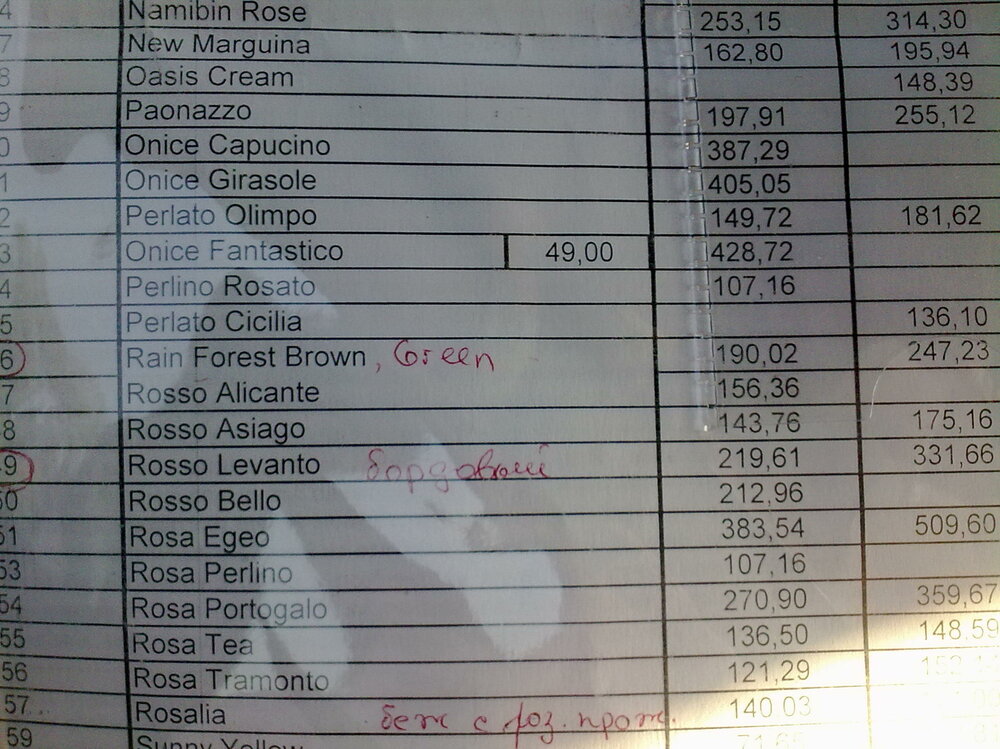 4 Namibin Rose 253,15 314,30
7 New Marguina 162,80 195,94
8 Oasis Cream 148,39
9 Paonazzo 197,91 255,12
0 Onice Capucino 387,29
1 Onice Girasole 405,05
2 Perlato Olimpo 149,72 181,62
3 Onice Fantastico 49,00 428,72
4 Perlino Rosato 107,16
5 Perlato Cicilia 136,10
6 Rain Forest Brown , Green 190,02 247,23
7 Rosso Alicante 156,36
8 Rosso Asiago 143,76 175,16
49 Rosso Levanto бордовый 219,61 331,66
50 Rosso Bello 212,96
51 Rosa Egeo 383,54 509,60
53 Rosa Perlino 107,16
54 Rosa Portogalo 270,90 359,67
55 Rosa Tea 136,50 148,59
56 Rosa Tramonto 121,29
57 Rosalia беж с роз. прож. 140,03
59 Sunny Yellow 71,65